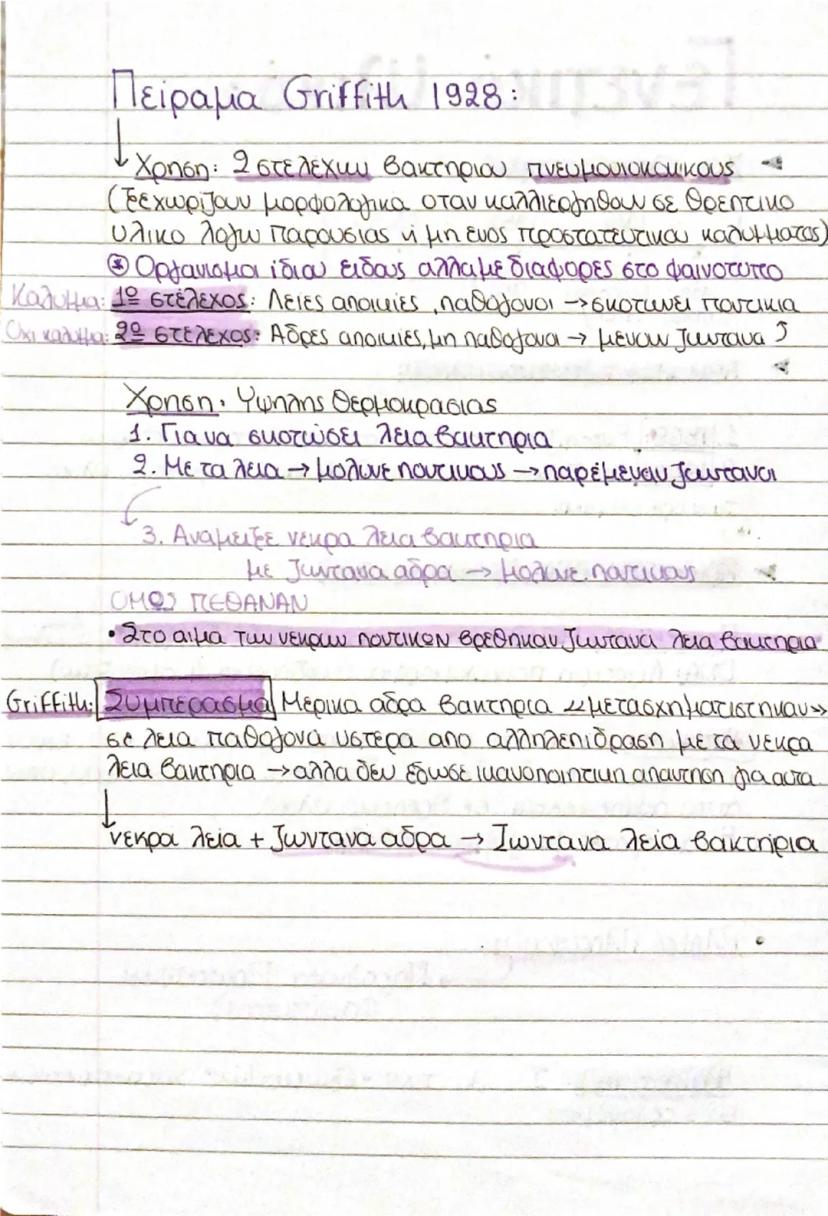 Πείραμα Griffith 1928:
Χρηση: 2 στελεχων βακτηριου πνευμονιοκοκκους
(ξεχωριζουν μορφολογικα οταν καλλιεργηθουν σε θρεπτικο
υλικο λογω παρουσιας ή μη ενος προστατευτικου καλυμματος)
* Οργανισμοι ίδιου ειδους αλλα με διαφορες στο φαινοτυπο
Καλυμμα: 1º στέλεχος: Λειές αποικίες, παθογονοι → σκοτωνει ποντικια
Οχι καλυμμα: 2º στέλεχος: Αδρες αποικίες, μη παθογονα → μενουν ζωντανα
Χρηση: Υψηλης θερμοκρασιας
1. Για να σκοτώσει λεια βακτηρια
2. Με τα λεια → μολυνε ποντικους → παρέμεναν ζωντανοι
3. Αναμειξε νεκρα λεια βακτηρια
με ζωντανα αδρα → μολυνε ποντικους
ΟΜΩΣ ΠΕΘΑΝΑΝ
• Στο αιμα των νεκρων ποντικων βρέθηκαν ζωντανά λεια βακτηρια
Griffith: Συμπέρασμα Μέρικα αδρα βακτηρια «μετασχηματιστηκαν»
σε λεια παθογονα υστέρα απο αλληλεπιδραση με τα νεκρα
λεια βακτηρια → αλλα δεν έδωσε ικανοποιητικη απαντηση για αυτα
νεκρά λεία + ζωντανα αδρα → Ζωντανα λεία βακτήρια